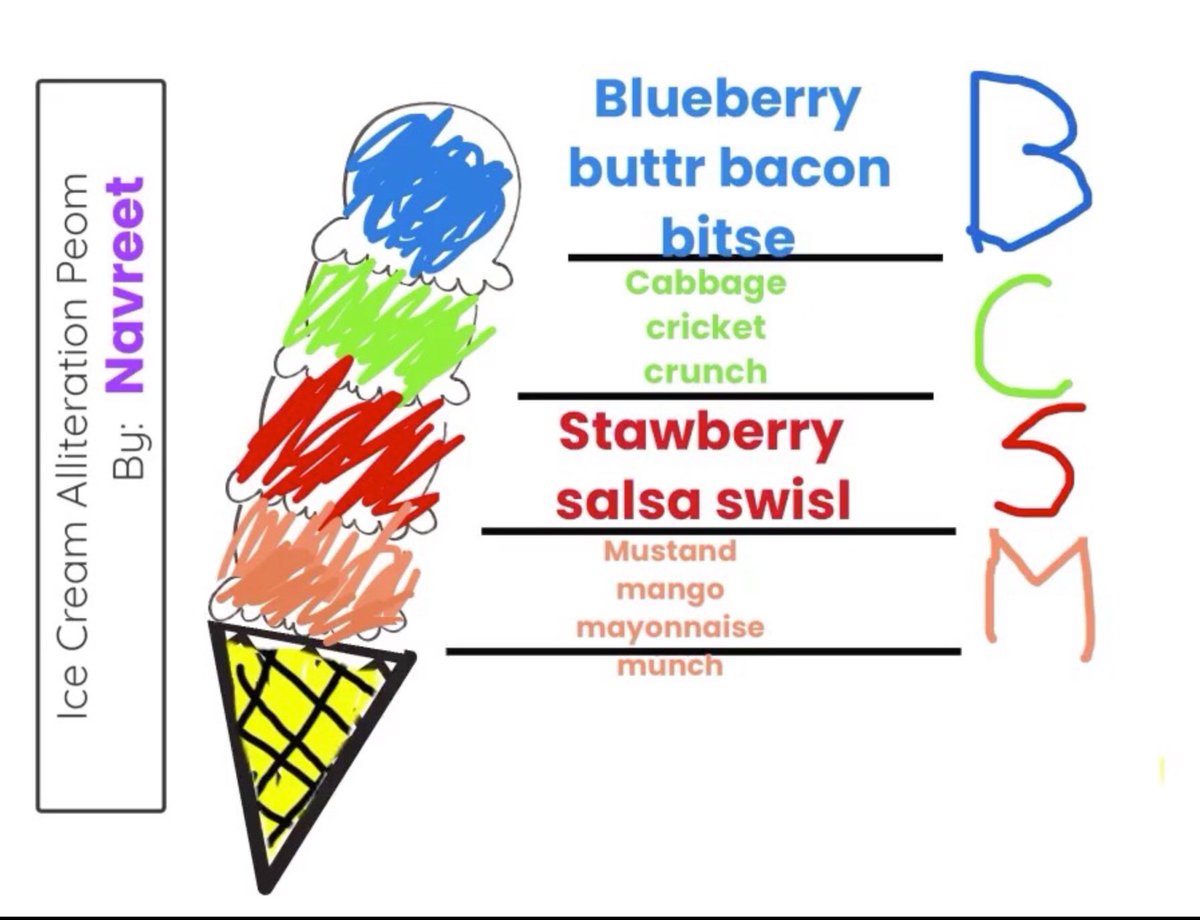 Ice Cream Alliteration Peom
By: Navreet
Blueberry
buttr bacon
bitse
B
Cabbage
cricket
crunch
C
Stawberry
salsa swisl
S
Mustand
mango
mayonnaise
munch
M